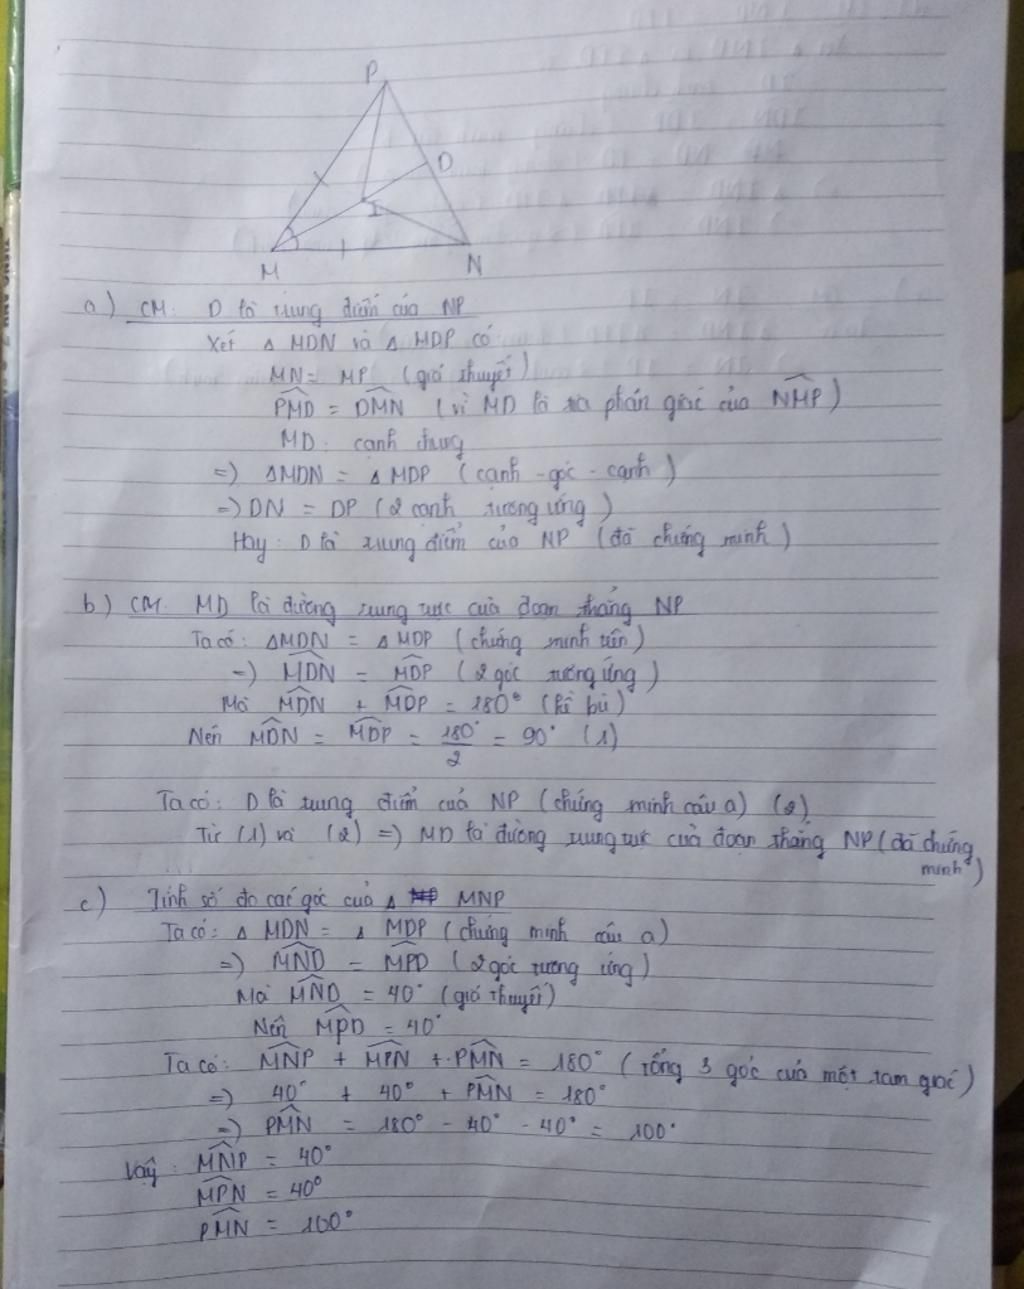 P
D
I
M
N
a) CM: D là trung điểm của NP
Xét Δ MDN và Δ MDP có
MN = MP (giả thuyết)
PMD̂ = DMN̂ (vì MD là tia phân giác của NMP̂)
MD: cạnh chung
=) ΔMDN = Δ MDP (cạnh - góc - cạnh)
=) DN = DP (2 cạnh tương ứng)
Hay: D là trung điểm của NP (đã chứng minh)
b) CM: MD là đường trung trực của đoạn thẳng NP
Ta có: ΔMDN = Δ MDP (chứng minh trên)
=) MDN̂ = MDP̂ (2 góc tương ứng)
Mà MDN̂ + MDP̂ = 180° (kề bù)
Nên MDN̂ = MDP̂ = 180°/2 = 90° (1)
Ta có: D là trung điểm của NP (chứng minh câu a) (2)
Từ (1) và (2) =) MD là đường trung trực của đoạn thẳng NP (đã chứng
minh)
c) Tính số đo các góc của Δ MNP
Ta có: Δ MDN = Δ MDP (chứng minh câu a)
=) MND̂ = MPD̂ (2 góc tương ứng)
Mà MND̂ = 40° (giả thuyết)
Nên MPD̂ = 40°
Ta có: MNP̂ + MPN̂ + PMN̂ = 180° (tổng 3 góc của một tam giác)
=) 40° + 40° + PMN̂ = 180°
=) PMN̂ = 180° - 40° - 40° = 100°
Vậy: MNP̂ = 40°
MPN̂ = 40°
PMN̂ = 100°